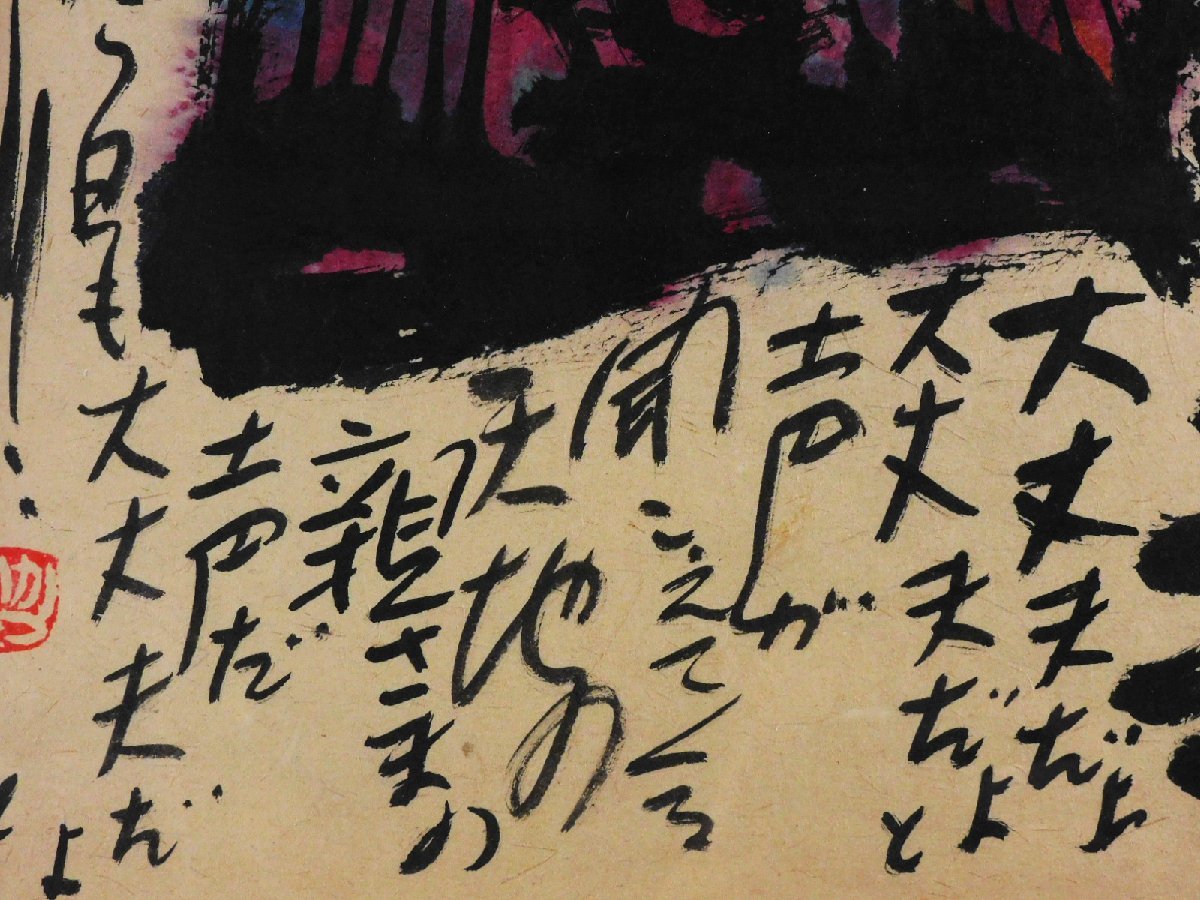 大丈夫だよ
大丈夫だよと
声が
聞こえてくる
天地の
親さまの
声だ
も大丈夫だ
よ